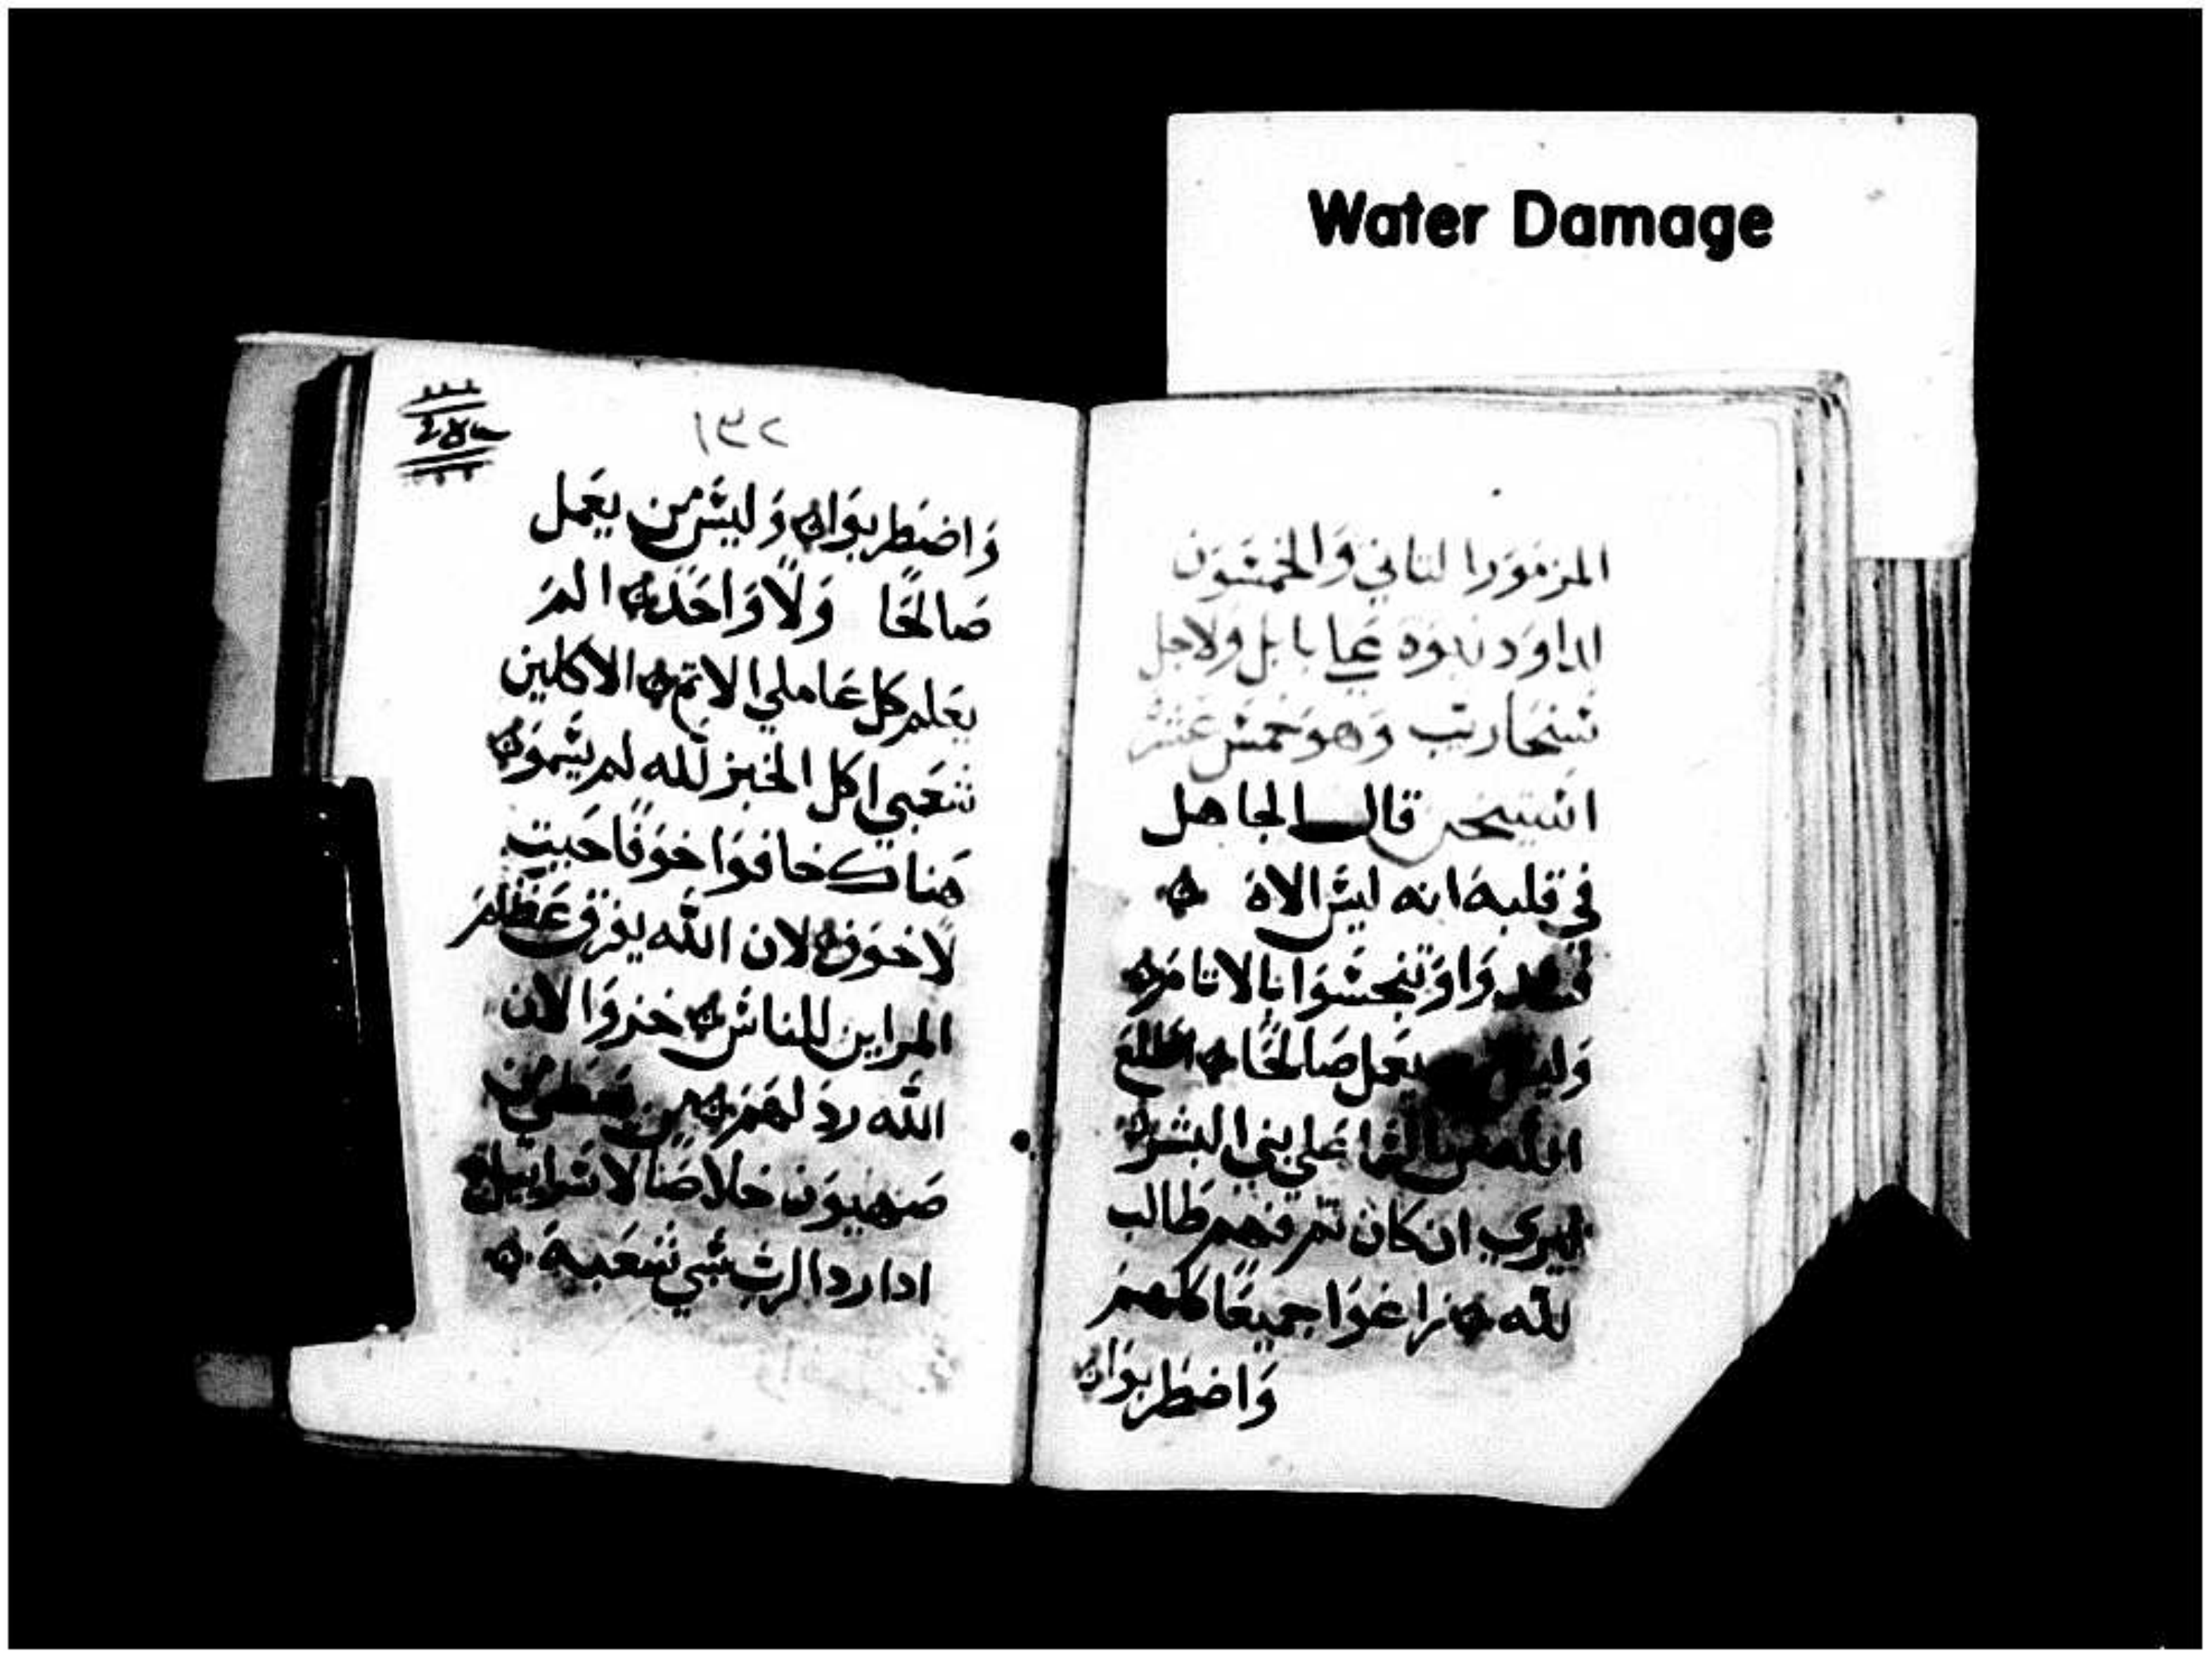 Water Damage
المزمور الثاني والخمسون
لداود نبوة علي بابل ولاجل
سنحاريب وهو خمس عشر
استيخن قال الجاهل
في قلبه انه ليس الاه
وتنجسوا بالاثامه
يعمل صالحا اطلع
الله علي بني البشر
ليري ان كان ثم فهم طالب
لله زاغوا جميعا كلهم
واضطربوا
١٣٢
واضطربوا وليس من يعمل
صالحا ولا واحد الم
يعلم كل عاملي الاثم الاكلين
شعبي اكل الخبز لله لم يسموه
هناك خافوا خوفا حيث
لا خوف لان الله يفرق عظام
المرايين للناس خزوا لان
الله رد لهم من يعطي من
صهيون خلاصا لاسراييل
اذا رد الرب سبي شعبه